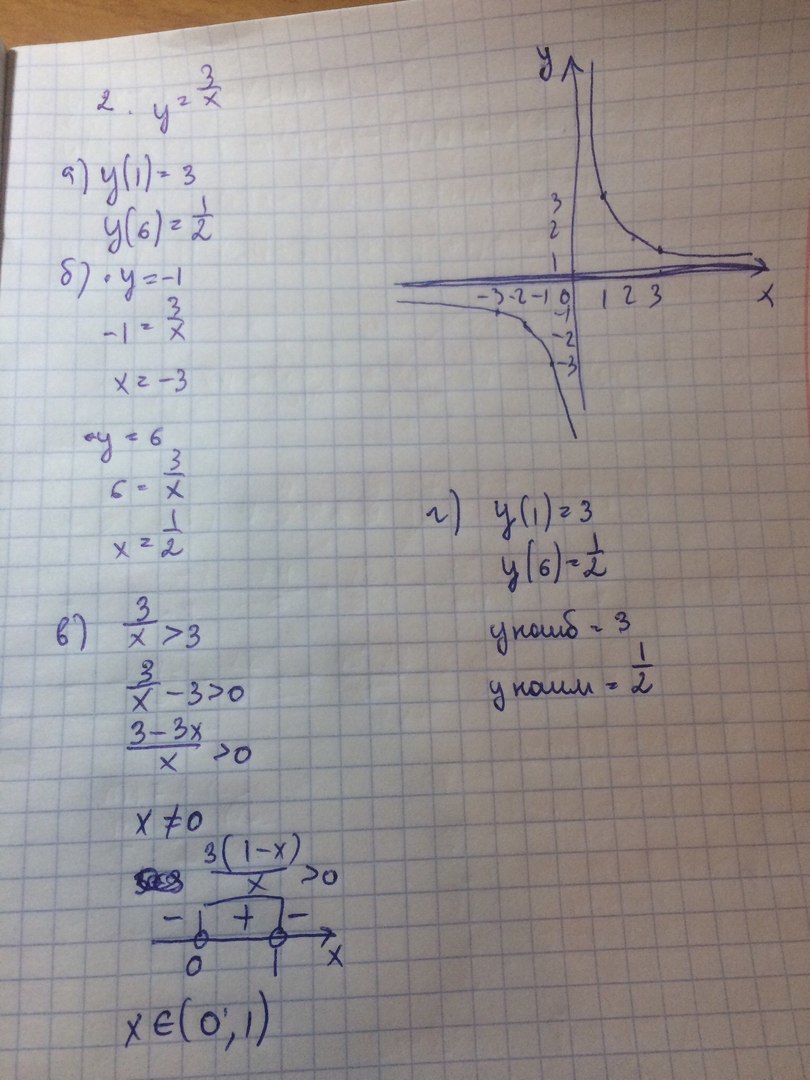 2. y = 3/x
а) y(1) = 3
y(6) = 1/2
б) · y = -1
-1 = 3/x
x = -3
· y = 6
6 = 3/x
x = 1/2
в) 3/x > 3
3/x - 3 > 0
(3-3x)/x > 0
x ≠ 0
3(1-x)/x > 0
- + -
0 1 x
x ∈ (0; 1)
y
3
2
1
-3 -2 -1 0 1 2 3 x
-1
-2
-3
г) y(1) = 3
y(6) = 1/2
y наиб = 3
y наим = 1/2